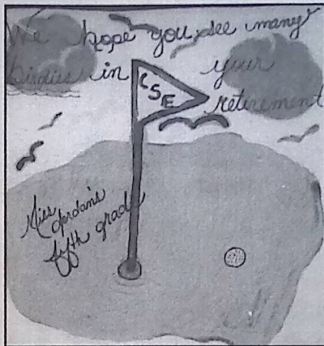 We hope you see many
birdies in your
retirement
LSE
Miss Jordan's
fifth grade